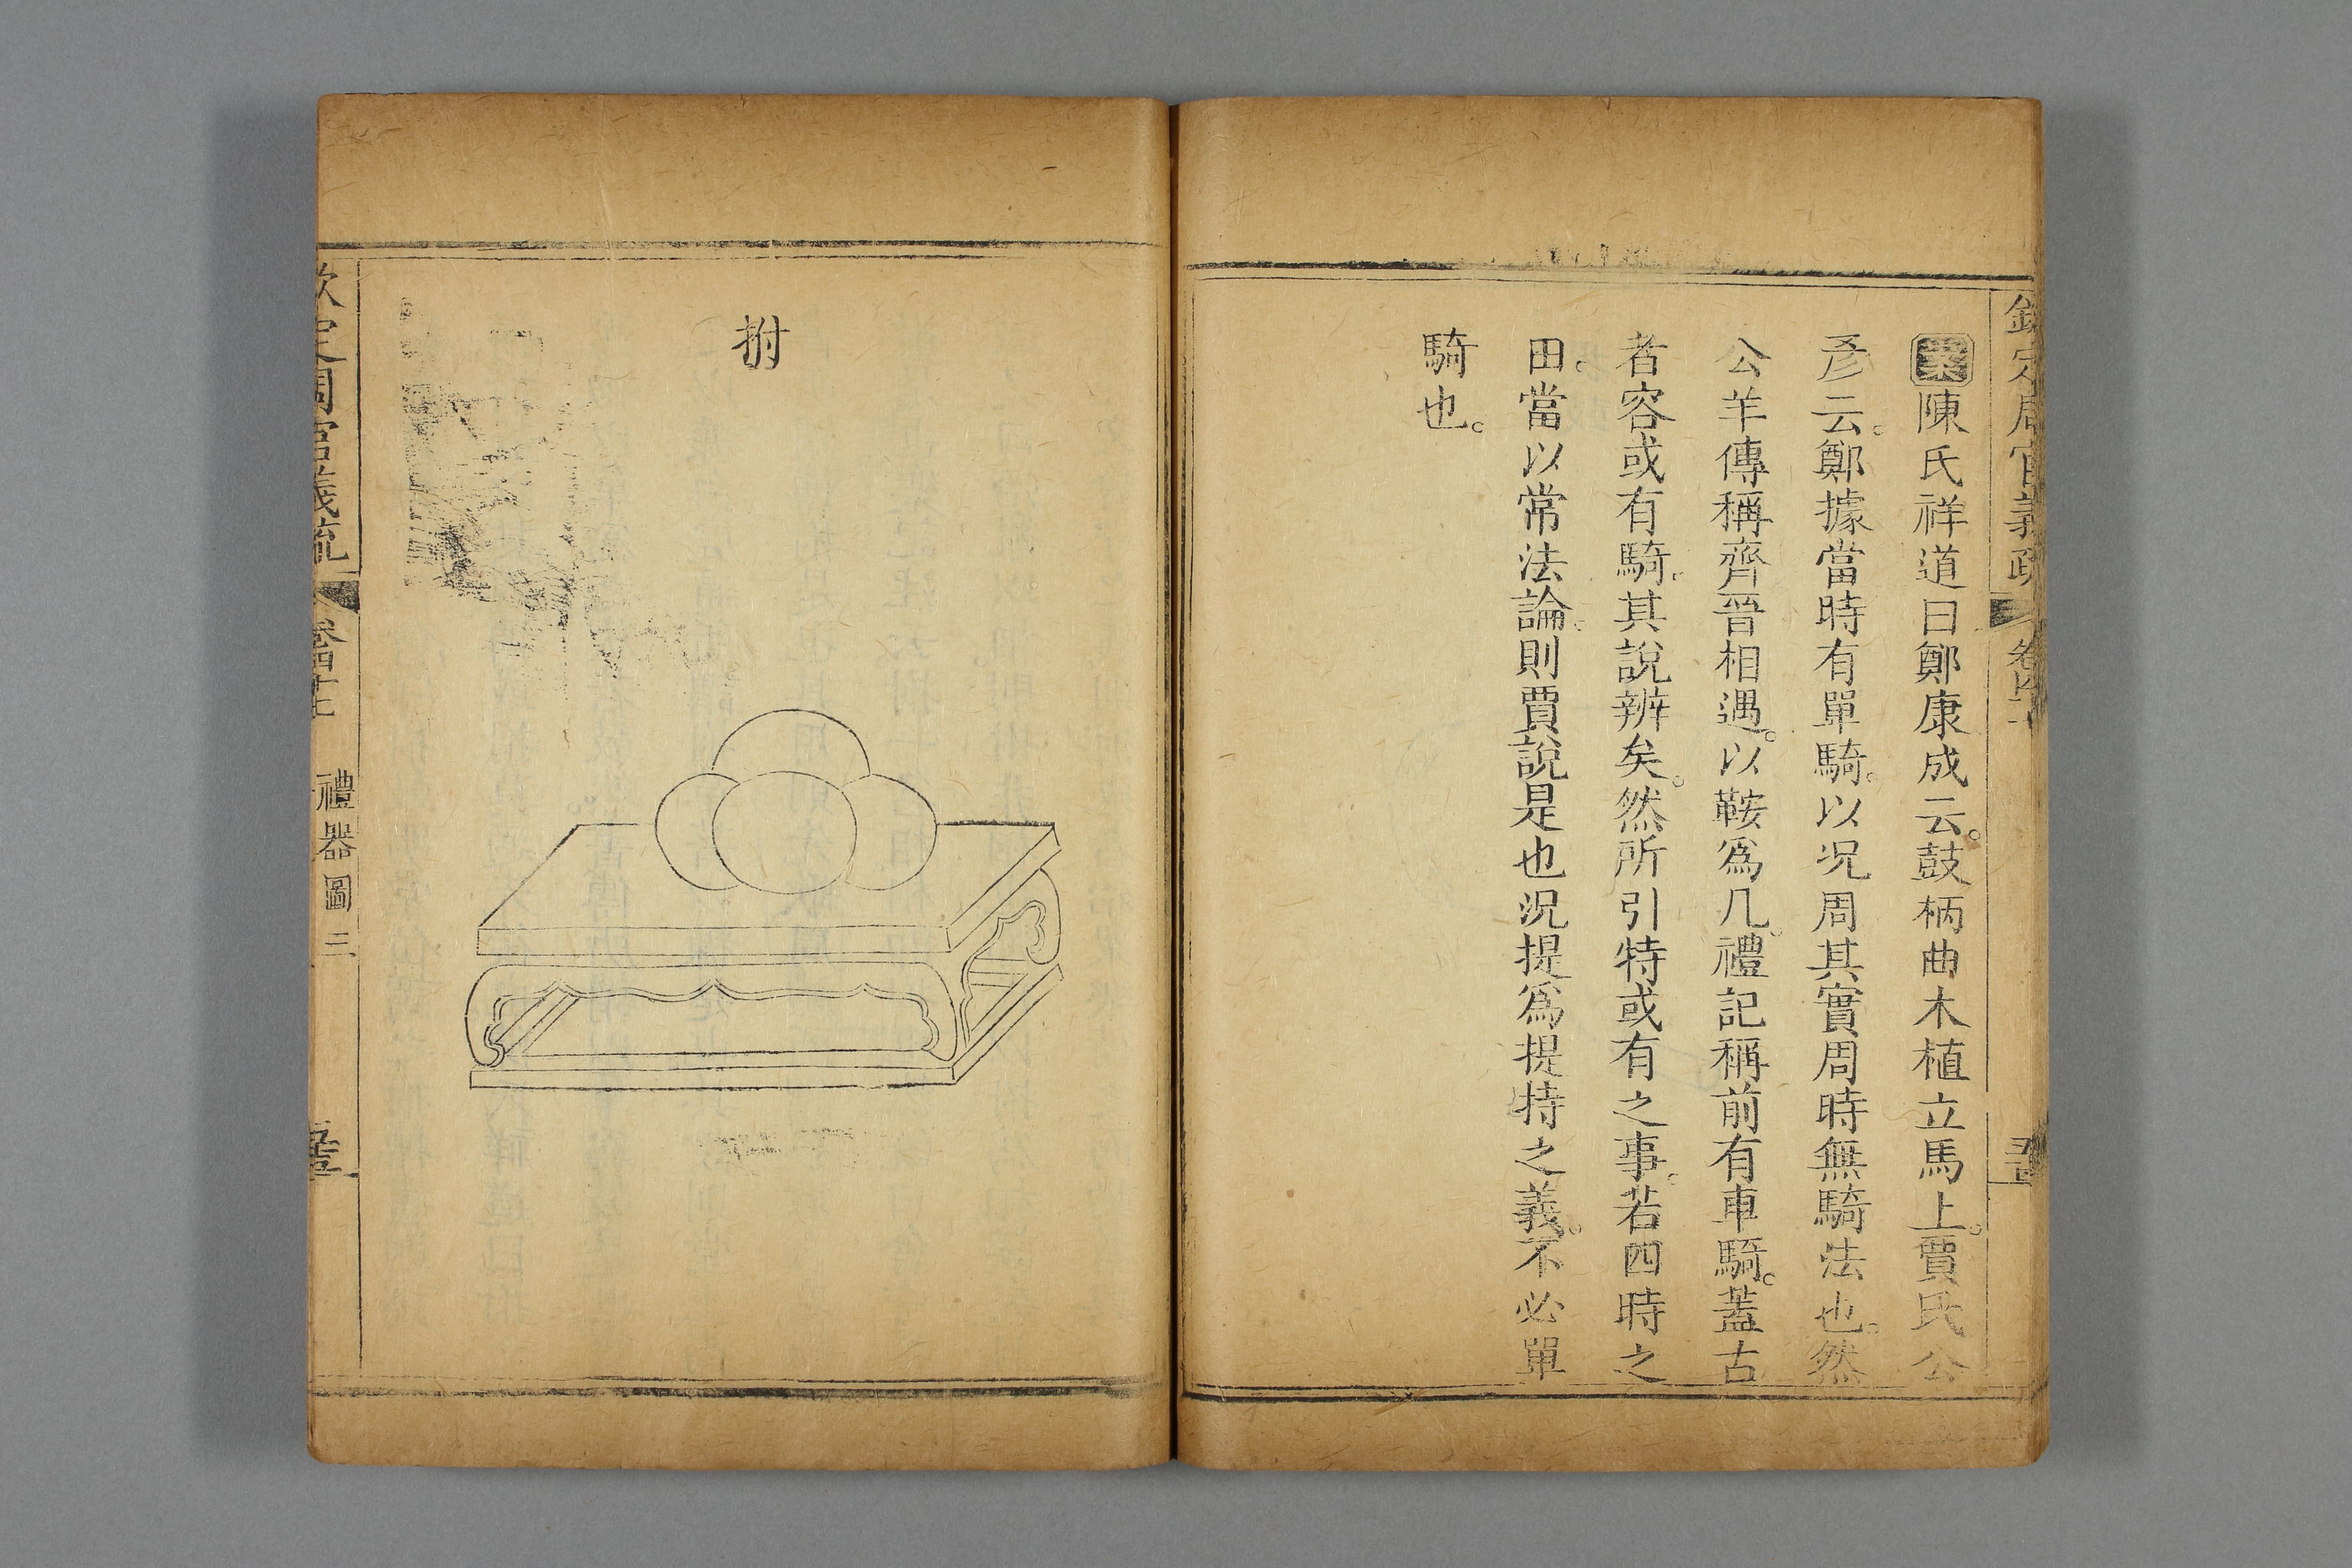 欽定周官義疏
案陳氏祥道曰鄭康成云鼓柄曲木植立馬上賈氏公
彥云鄭據當時有單騎以況周其實周時無騎法也然
公羊傳稱齊晉相遇以鞍為几禮記稱前有車騎蓋古
者容或有騎其說辨矣然所引特或有之事若四時之
田當以常法論則賈說是也況提為提持之義不必單
騎也
拊
欽定周官義疏
禮器圖三